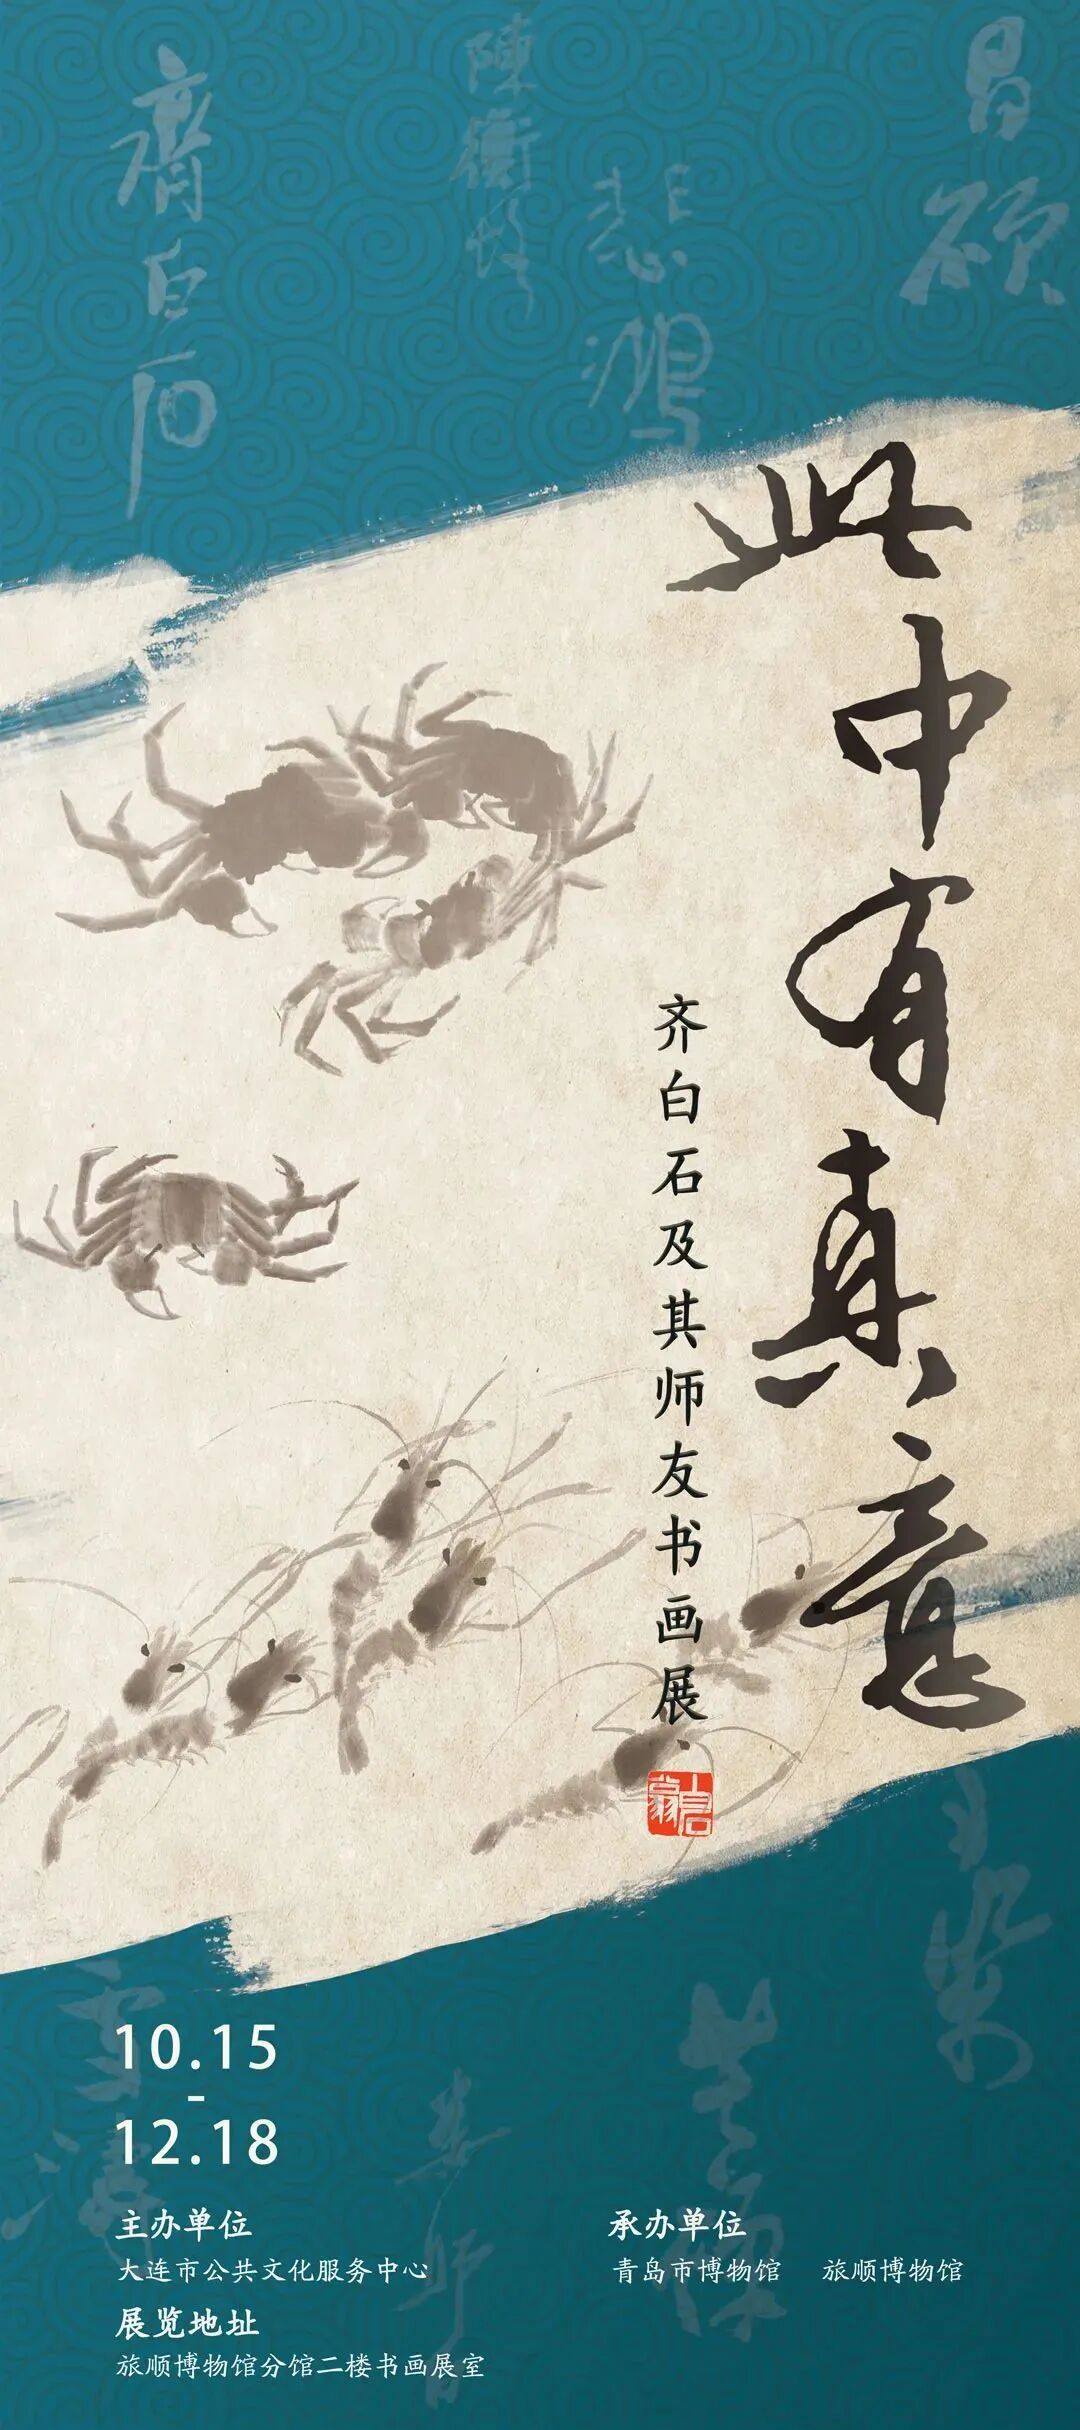 齊白石
陳衡恪
悲鴻
昌碩
此中有真意
齐白石及其师友书画展
10.15
-
12.18
主办单位
大连市公共文化服务中心
承办单位
青岛市博物馆 旅顺博物馆
展览地址
旅顺博物馆分馆二楼书画展室